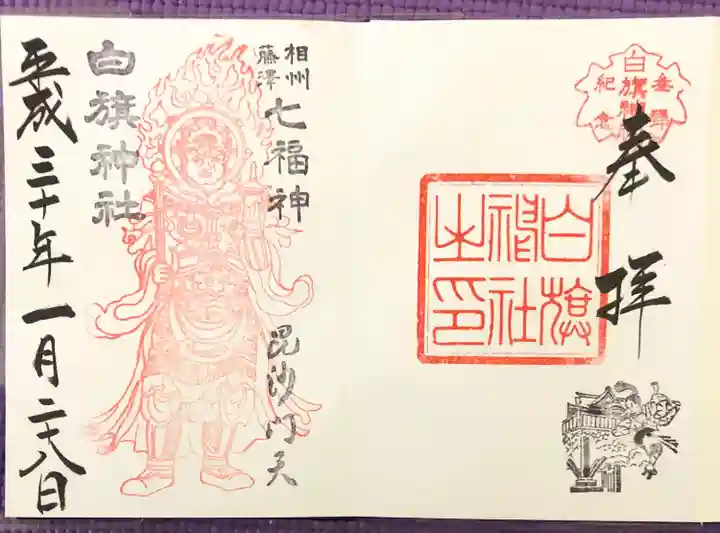 白旗神社
参拝
紀念
奉拝
白旗
神社
之印
相州
藤澤
七福神
毘沙門天
白旗神社
平成三十年一月二十八日